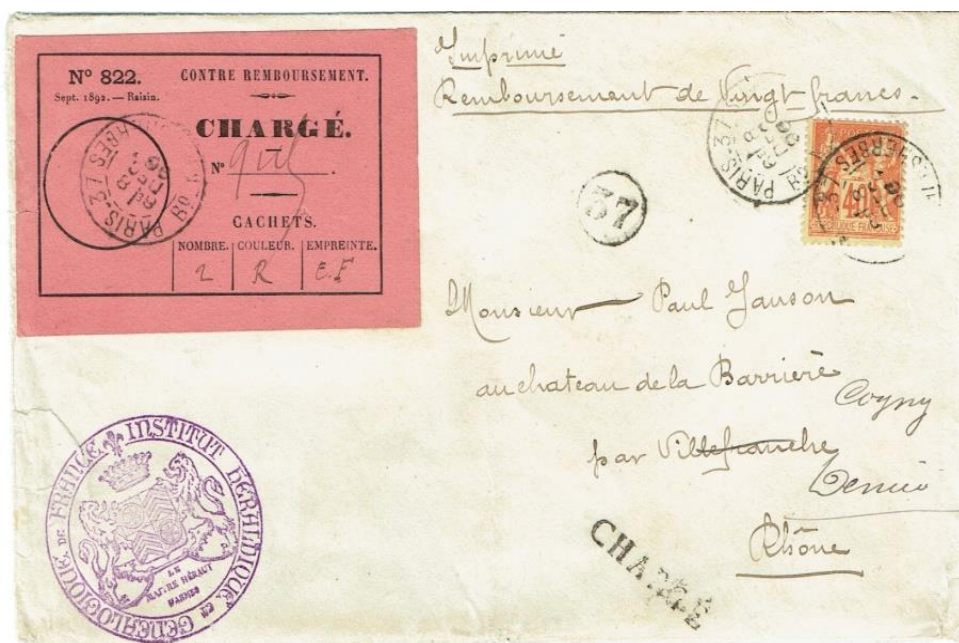 Nº 822.
Sept. 1892. — Raisin.
CONTRE REMBOURSEMENT.
CHARGÉ.
Nº
CACHETS.
NOMBRE. COULEUR. EMPREINTE.
2 R E.F
PARIS-37
Imprimé
Remboursement de Vingt francs.
PARIS-37
40
37
Monsieur Paul Janson
au chateau de la Barrière
Cogny
par Villefranche
Denicé
Rhône
CHARGÉ
INSTITUT HÉRALDIQUE ET GÉNÉALOGIQUE DE FRANCE
LE